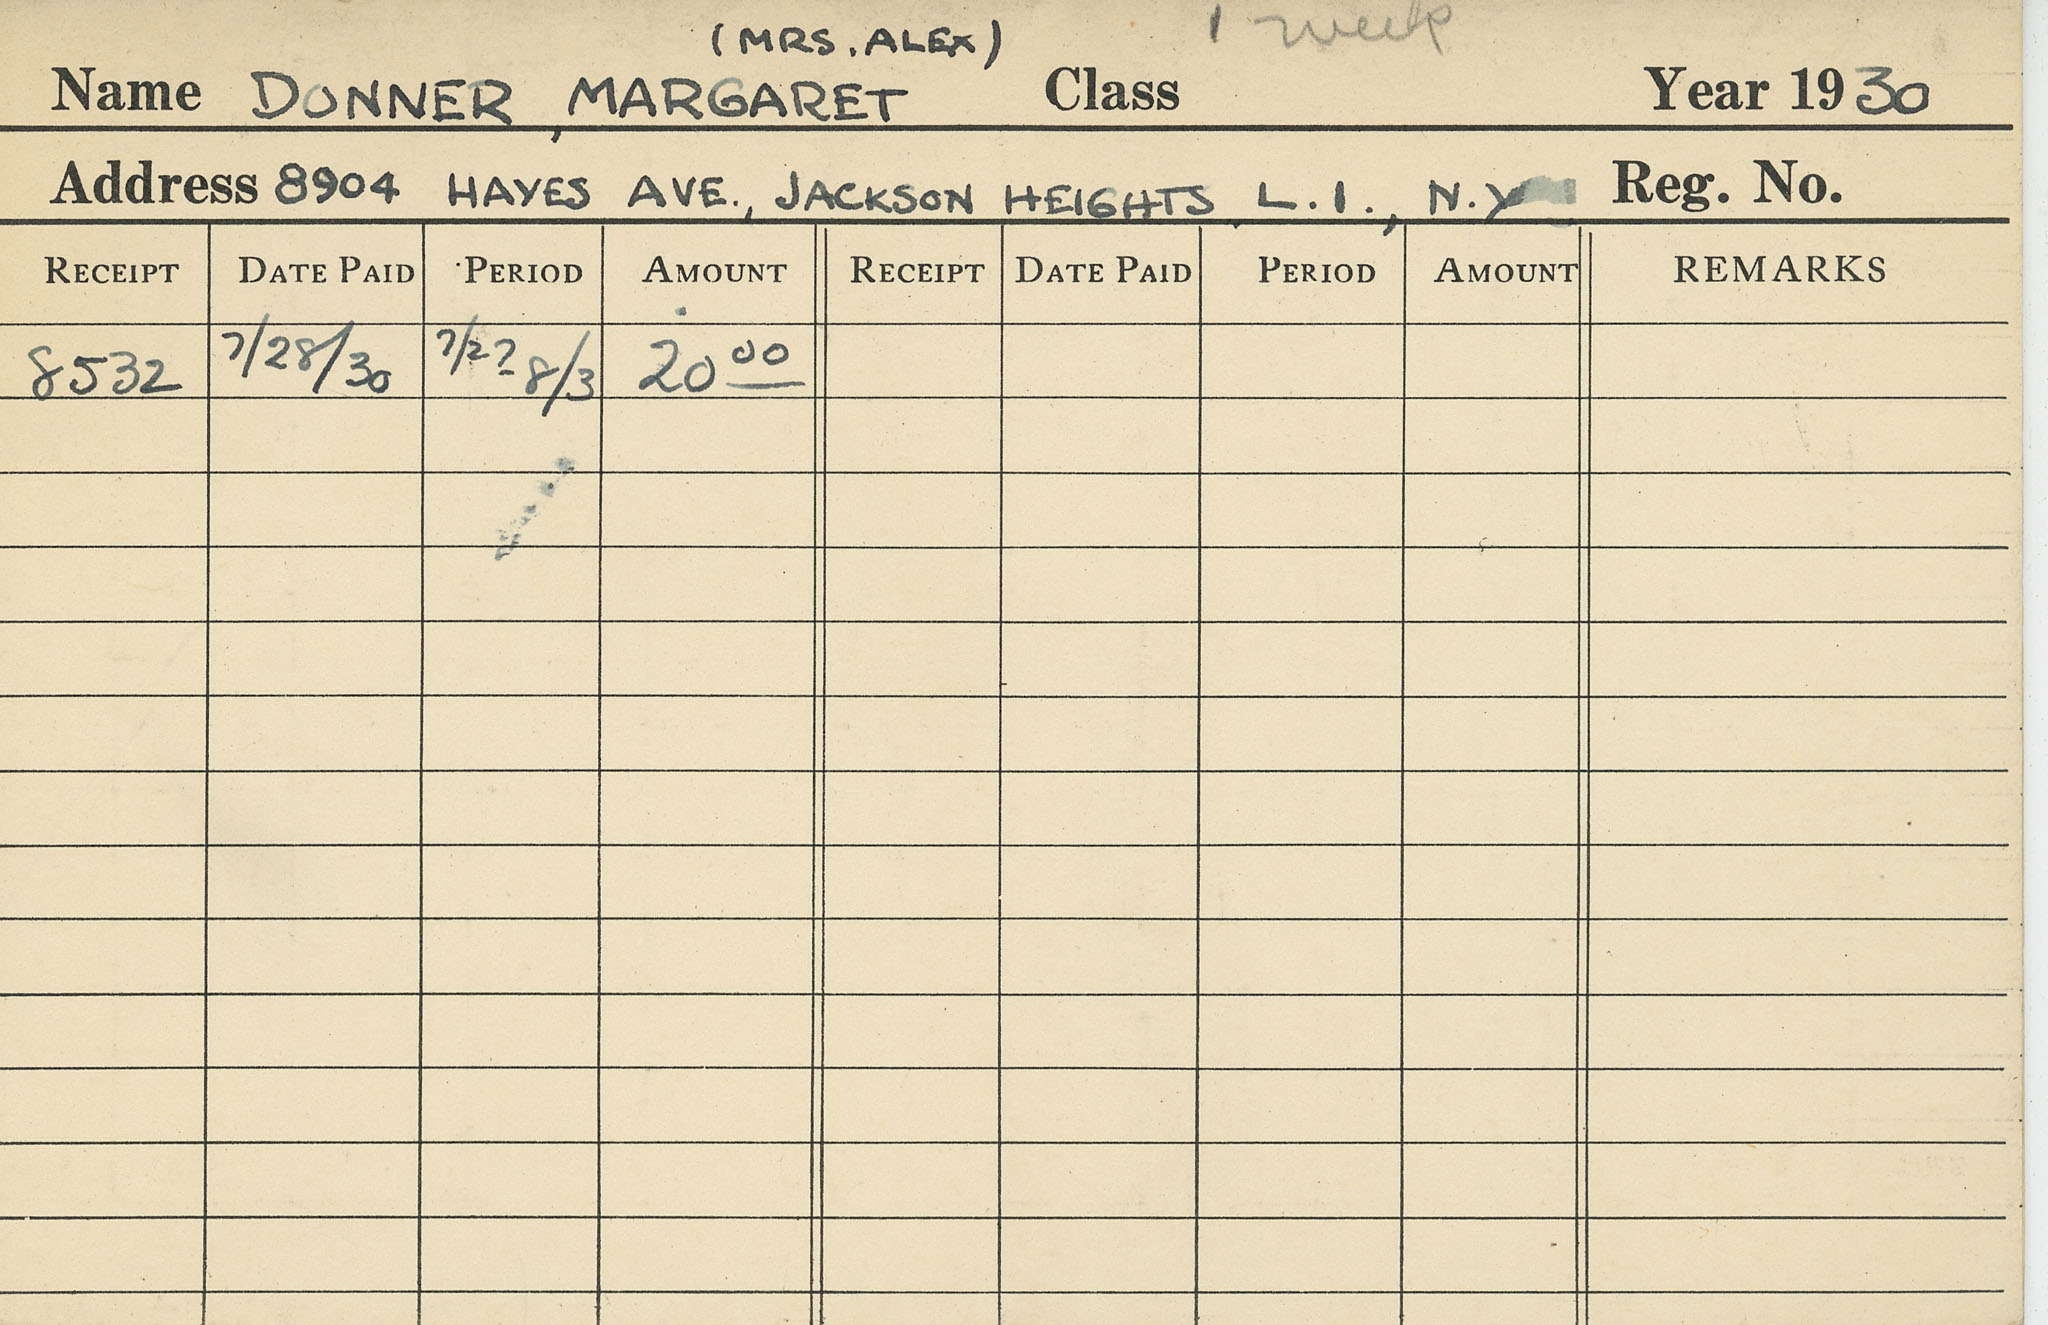 (MRS. ALEX) 1 week
Name DONNER, MARGARET Class Year 1930
Address 8904 HAYES AVE., JACKSON HEIGHTS, L.I., N.Y. Reg. No.
RECEIPT DATE PAID PERIOD AMOUNT RECEIPT DATE PAID PERIOD AMOUNT REMARKS
8532 7/28/30 7/27-8/3 20 00